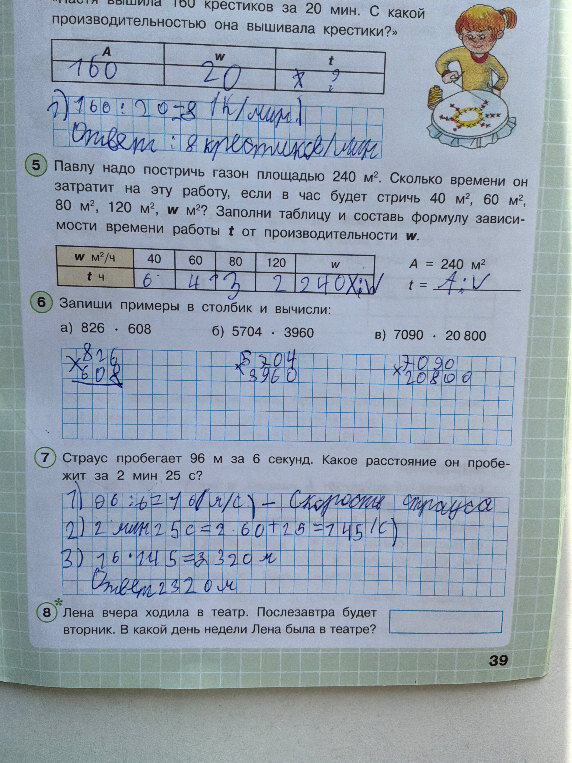 «Настя вышила 160 крестиков за 20 мин. С какой
производительностью она вышивала крестики?»
A w t
160 20 x ?
1) 160 : 20 = 8 (к/мин)
Ответ : 8 крестиков/мин
5 Павлу надо постричь газон площадью 240 м². Сколько времени он
затратит на эту работу, если в час будет стричь 40 м², 60 м²,
80 м², 120 м², w м²? Заполни таблицу и составь формулу зависи-
мости времени работы t от производительности w.
w м²/ч 40 60 80 120 w
t ч 6 4 3 2 240:w
A = 240 м²
t = A:V
6 Запиши примеры в столбик и вычисли:
а) 826 · 608 б) 5704 · 3960 в) 7090 · 20 800
×826 ×5704 ×7090
608 3960 20800
7 Страус пробегает 96 м за 6 секунд. Какое расстояние он пробе-
жит за 2 мин 25 с?
1) 96 : 6 = 16 (м/с) – Скорость страуса
2) 2 мин 25 с = 2·60+25 = 145 (с)
3) 16·145 = 2320 м
Ответ 2320 м
8* Лена вчера ходила в театр. Послезавтра будет
вторник. В какой день недели Лена была в театре?
39